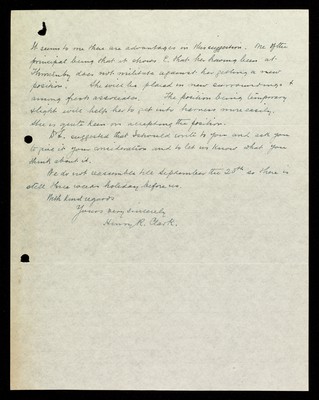 It seems to me there are advantages in this suggestion. One of the
principal being that it shows E. that her having been at
does not militate against her getting a new
position. She will be placed in new surroundings &
among fresh associates. The position being temporary
might will help her to get into harness more easily.
She is quite keen on accepting the position.
suggested that I should write to you and ask you
to give it your consideration and to let us know what you
think about it.
We do not reassemble till September the 25th so there is
still three weeks holiday before us.
With kind regards
Yours very sincerely
Henry R. Clark.